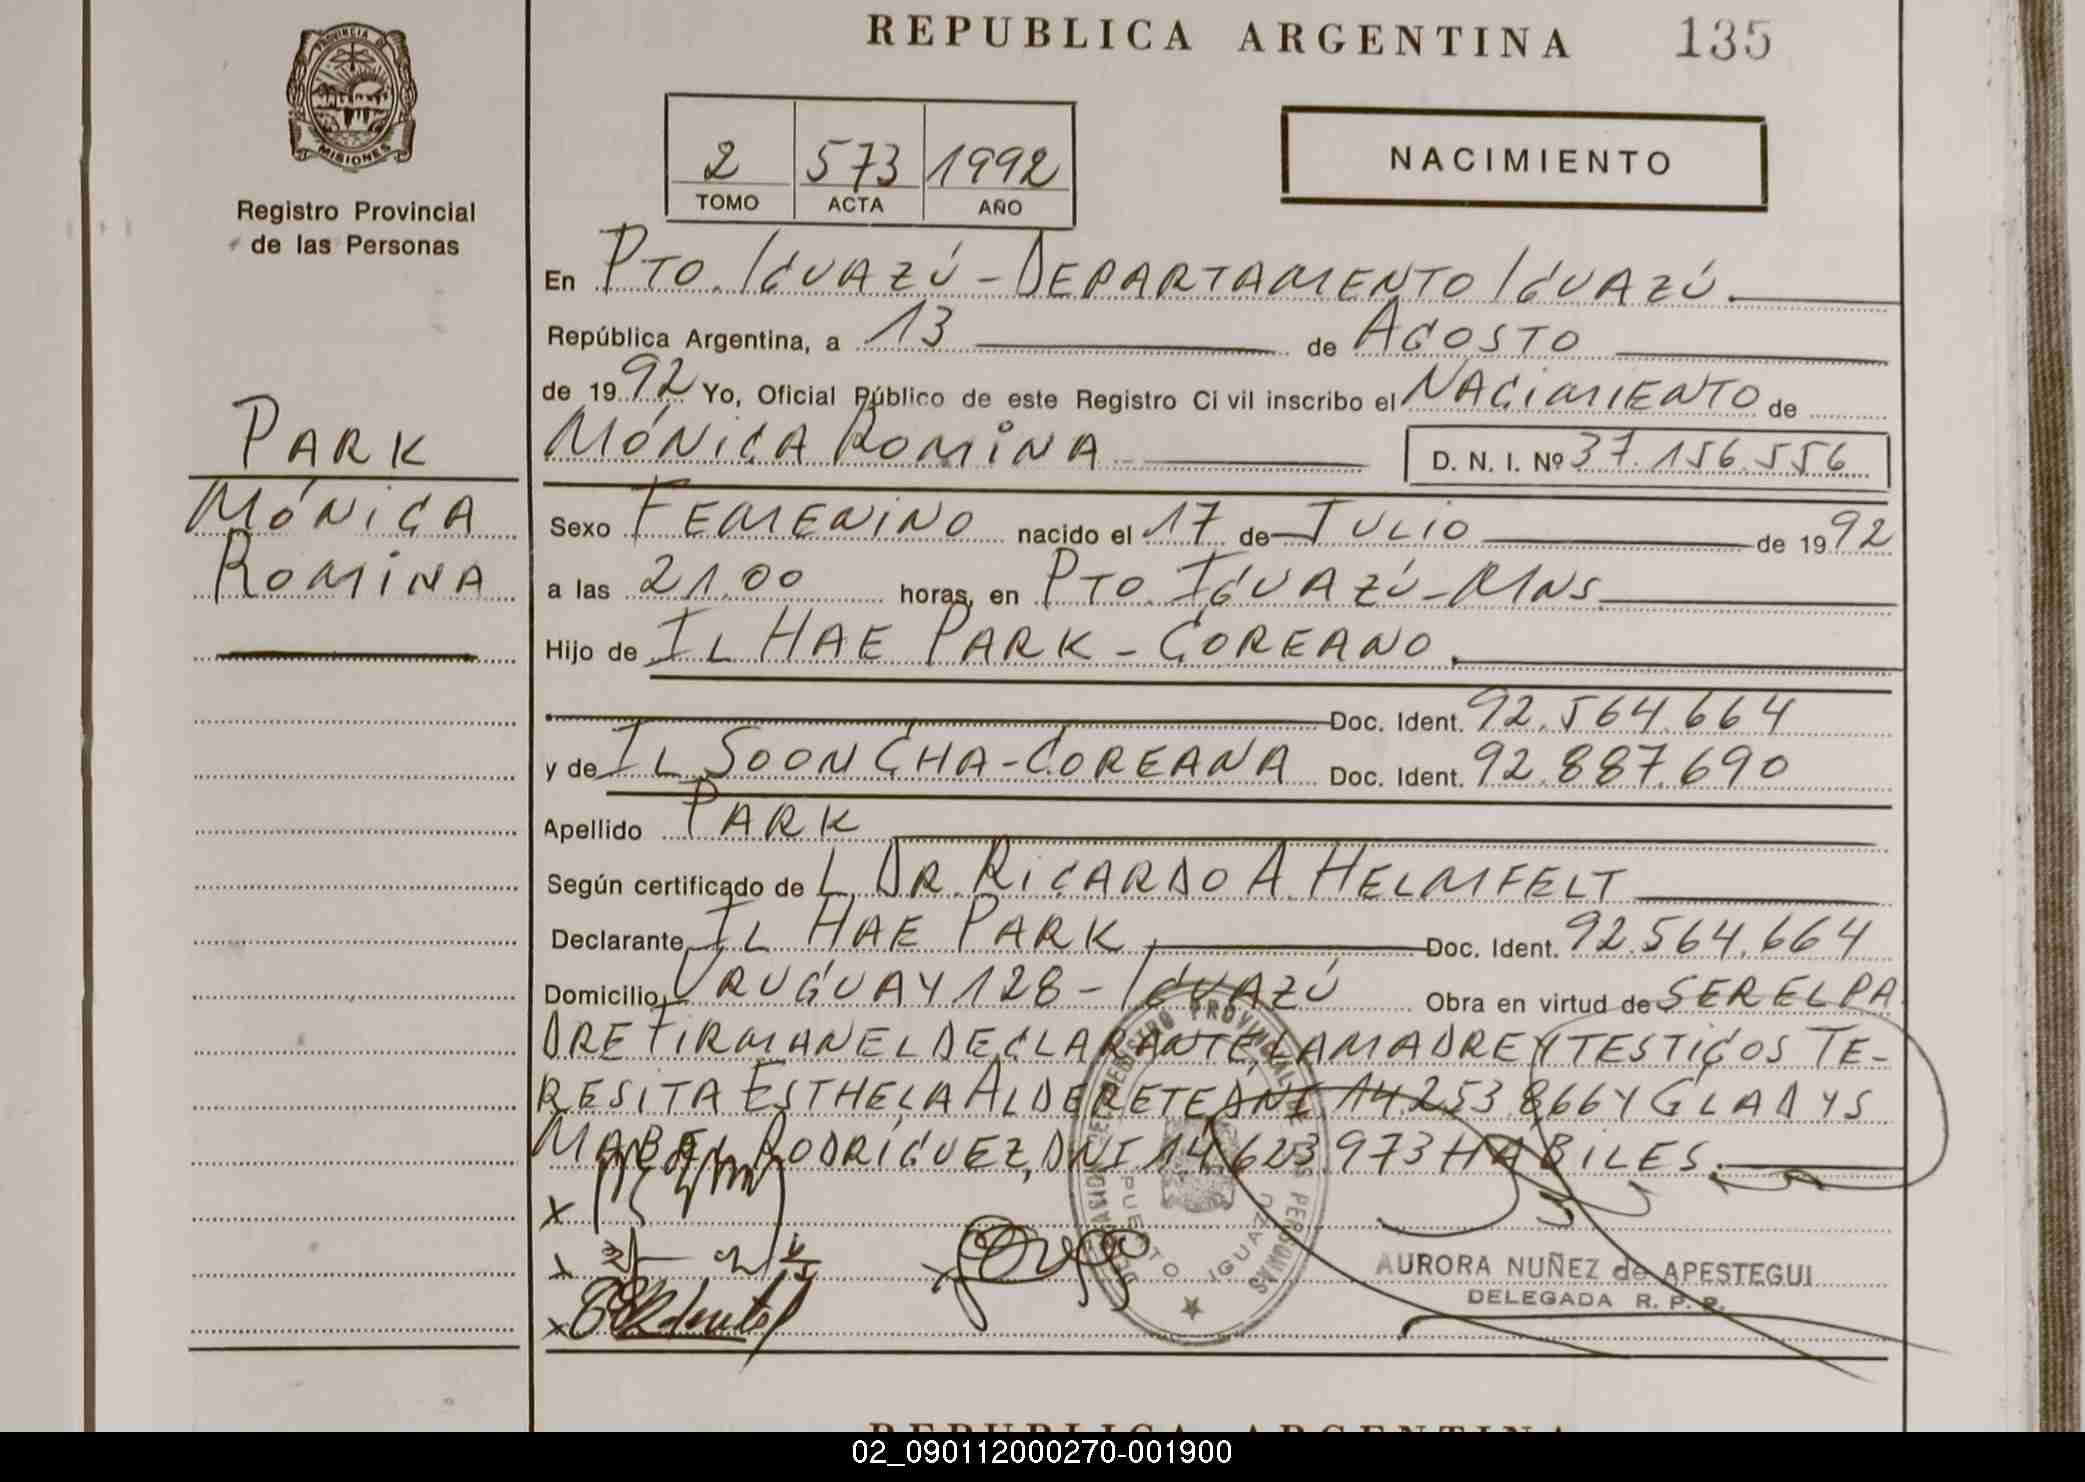 REPUBLICA ARGENTINA 135
PROVINCIA DE
MISIONES
Registro Provincial
de las Personas
2 573 1992
TOMO ACTA AÑO
NACIMIENTO
En PTO. IGUAZÚ - DEPARTAMENTO IGUAZÚ.
República Argentina, a 13 de AGOSTO
de 1992 Yo, Oficial Público de este Registro Civil inscribo el NACIMIENTO de
MÓNICA ROMINA D. N. I. Nº 37.156.556
PARK
MÓNICA
ROMINA
Sexo FEMENINO nacido el 17 de JULIO de 1992
a las 21.00 horas, en PTO. IGUAZÚ - MNS
Hijo de IL HAE PARK - COREANO.
Doc. Ident. 92.564.664
y de IL SOON CHA - COREANA Doc. Ident. 92.887.690
Apellido PARK
Según certificado de L DR. RICARDO A. HELMFELT
Declarante IL HAE PARK. Doc. Ident. 92.564.664
Domicilio URUGUAY 128 - IGUAZÚ Obra en virtud de SER EL PA
DRE FIRMAN EL DECLARANTE, LA MADRE Y TESTIGOS TE-
RESITA ESTHELA ALDERETE DNI 14.253.866 Y GLADYS
MABEL RODRÍGUEZ, DNI 14.623.973 HABILES.
X
X
X
REGISTRO PROVINCIAL DE LAS PERSONAS
PUERTO IGUAZU
AURORA NUÑEZ de APESTEGUI
DELEGADA R. P. P.
REPUBLICA ARGENTINA
02_090112000270-001900